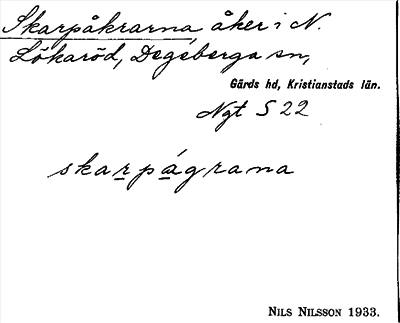 Skarpåkrarna, åker i N.
Lökaröd, Degeberga sn,
Gärds hd, Kristianstads län.
Ngt S 22
skarpágrana
NILS NILSSON 1933.